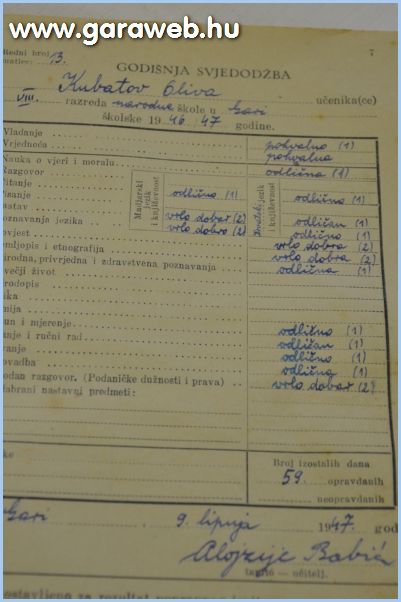 www.garaweb.hu
Redni broj
matice: 13.
7
GODIŠNJA SVJEDODŽBA
Kubatov Oliva učenika(ce)
VIII. razreda narodne škole u Gari
školske 1946.-47 godine.
Vladanje pohvalno (1)
Vrjednoća pohvalna
Nauka o vjeri i moralu odlična (1)
Razgovor
Čitanje odlično (1)
Pisanje odlično (1) odličan (1)
vrlo dobar (2) odlično (1)
poznavanja jezika vrlo dobro (2) vrlo dobra (2)
Madžarski jezik i književnost
jezik i književnost
zemljopis i etnografija vrlo dobra (2)
prirodna, privrjedna i zdravstvena poznavanja odlična (1)
čovečji život
prirodopis
fizika
kemija
račun i mjerenje odlično (1)
crtanje i ručni rad odličan (1)
pjevanje odlično (1)
odlična (1)
slobodan razgovor. (Podaničke dužnosti i prava) vrlo dobar (2)
Odabrani nastavni predmeti:
Broj izostalih dana
59 opravdanih
neopravdanih
Gari 9. lipnja 1947. god
Alojzije Babić
učitelj.